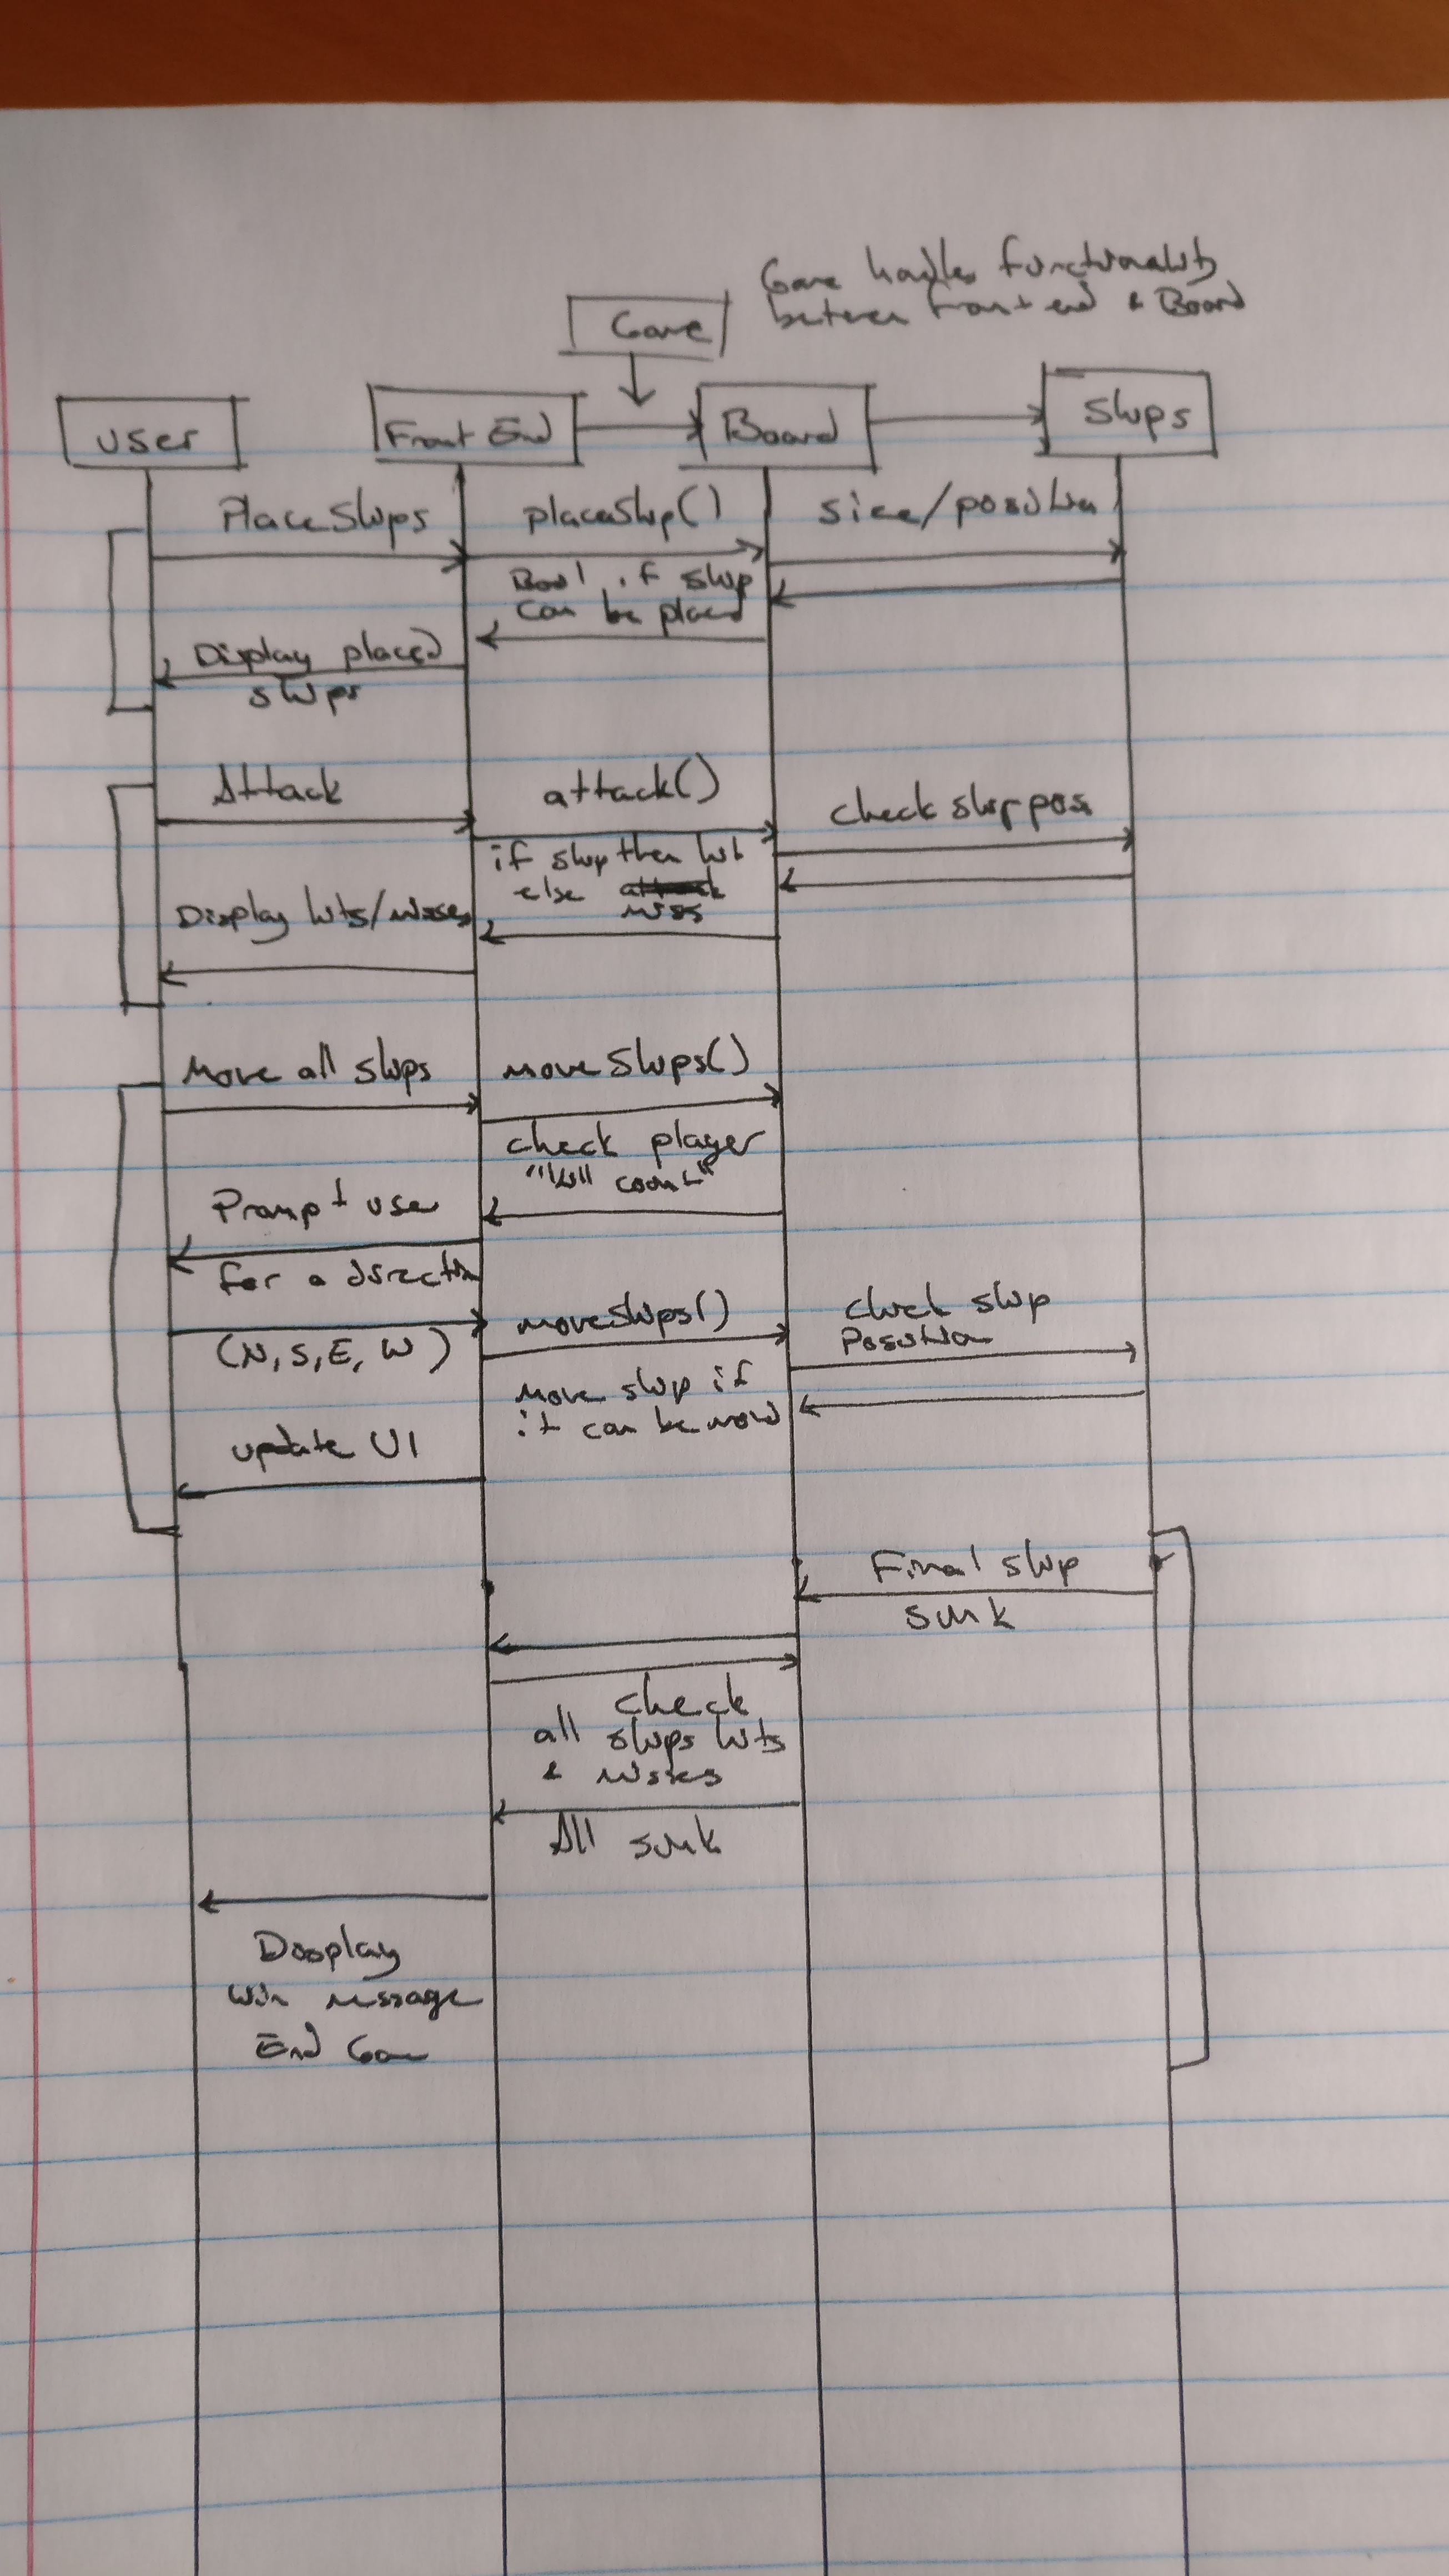 Game handles functionality
between Front end & Board
Game
User
Front End
Board
Ships
Place Ships
placeShip()
size/position
Bool if ship
can be placed
Display placed
ships
Attack
attack()
check ship pos
if ship then hit
else attack
miss
Display hits/misses
Move all ships
moveShips()
check player
"kill count"
Prompt use
for a direction
(N, S, E, W)
moveShips()
check ship
Position
Move ship if
it can be moved
update UI
Final ship
sunk
check
all ships hits
& misses
All sunk
Display
win message
End Game